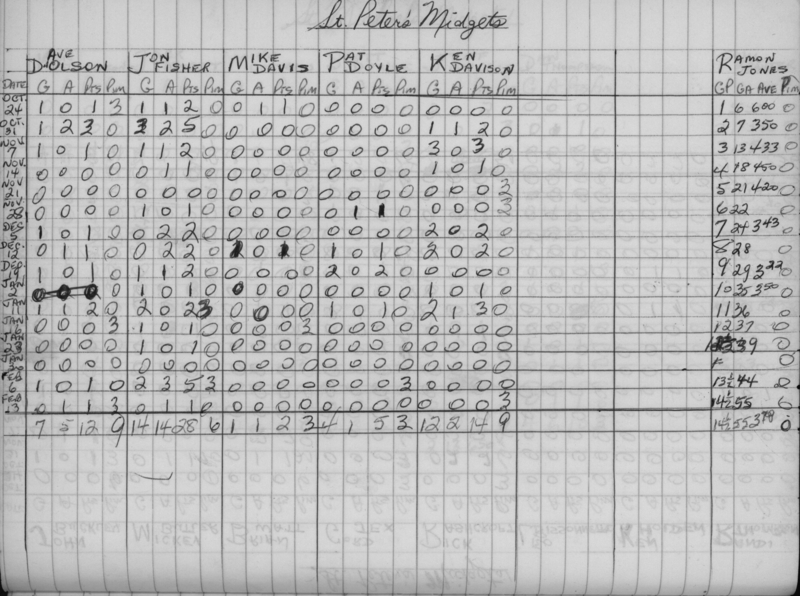 St. Peter's Midgets
DAVE OLSON JON FISHER MIKE DAVIS PAT DOYLE KEN DAVISON RAMON JONES
DATE G A Pts Pim G A Pts Pim G A Pts Pim G A Pts Pim G A Pts Pim GP GA AVE Pim
OCT. 24 1 0 1 3 1 1 2 0 0 1 1 0 0 0 0 0 0 0 0 0 1 6 600 0
OCT. 31 1 2 3 0 3 2 5 0 0 0 0 0 0 0 0 0 1 1 2 0 2 7 350 0
NOV. 7 1 0 1 0 1 1 2 0 0 0 0 0 0 0 0 0 3 0 3 0 3 13 433 0
NOV. 14 0 0 0 0 0 1 1 0 0 0 0 0 0 0 0 0 1 0 1 0 4 18 450 0
NOV 21 0 0 0 0 0 0 0 0 0 0 0 0 0 0 0 0 0 0 0 3 5 21 420 0
NOV. 28 0 0 0 0 1 0 1 0 0 0 0 0 0 1 1 0 0 0 0 3 6 22 0
DEC 5 1 0 1 0 0 2 2 0 0 0 0 0 0 0 0 0 2 0 2 0 7 24 343 0
DEC. 12 0 1 1 0 0 2 2 0 1 0 1 0 1 0 1 0 2 0 2 0 8 28 0
DEC. 19 1 0 1 0 1 1 2 0 0 0 0 0 2 0 2 0 0 0 0 0 9 29 322 0
JAN 2 0 0 0 1 0 1 0 0 0 0 0 0 0 0 0 1 0 1 0 10 35 350 0
JAN 11 1 1 2 0 2 0 2 3 0 0 0 0 1 0 1 0 2 1 3 0 11 36 0
JAN 16 0 0 0 3 1 0 1 0 0 0 0 3 0 0 0 0 0 0 0 0 12 37 0
JAN 23 0 0 0 0 1 0 1 0 0 0 0 0 0 0 0 0 0 0 0 0 39 0
JAN 0 0 0 0 0 0 0 0 0 0 0 0 0 0 0 0 0 0 0 0 0
FEB 6 1 0 1 0 2 3 5 3 0 0 0 0 0 0 0 3 0 0 0 0 13½ 44 0
FEB 13 0 1 1 3 0 1 1 0 0 0 0 0 0 0 0 0 0 0 0 3 14½ 55 0
7 5 12 9 14 14 28 6 1 1 2 3 4 1 5 3 12 2 14 9 14½ 55 379 0